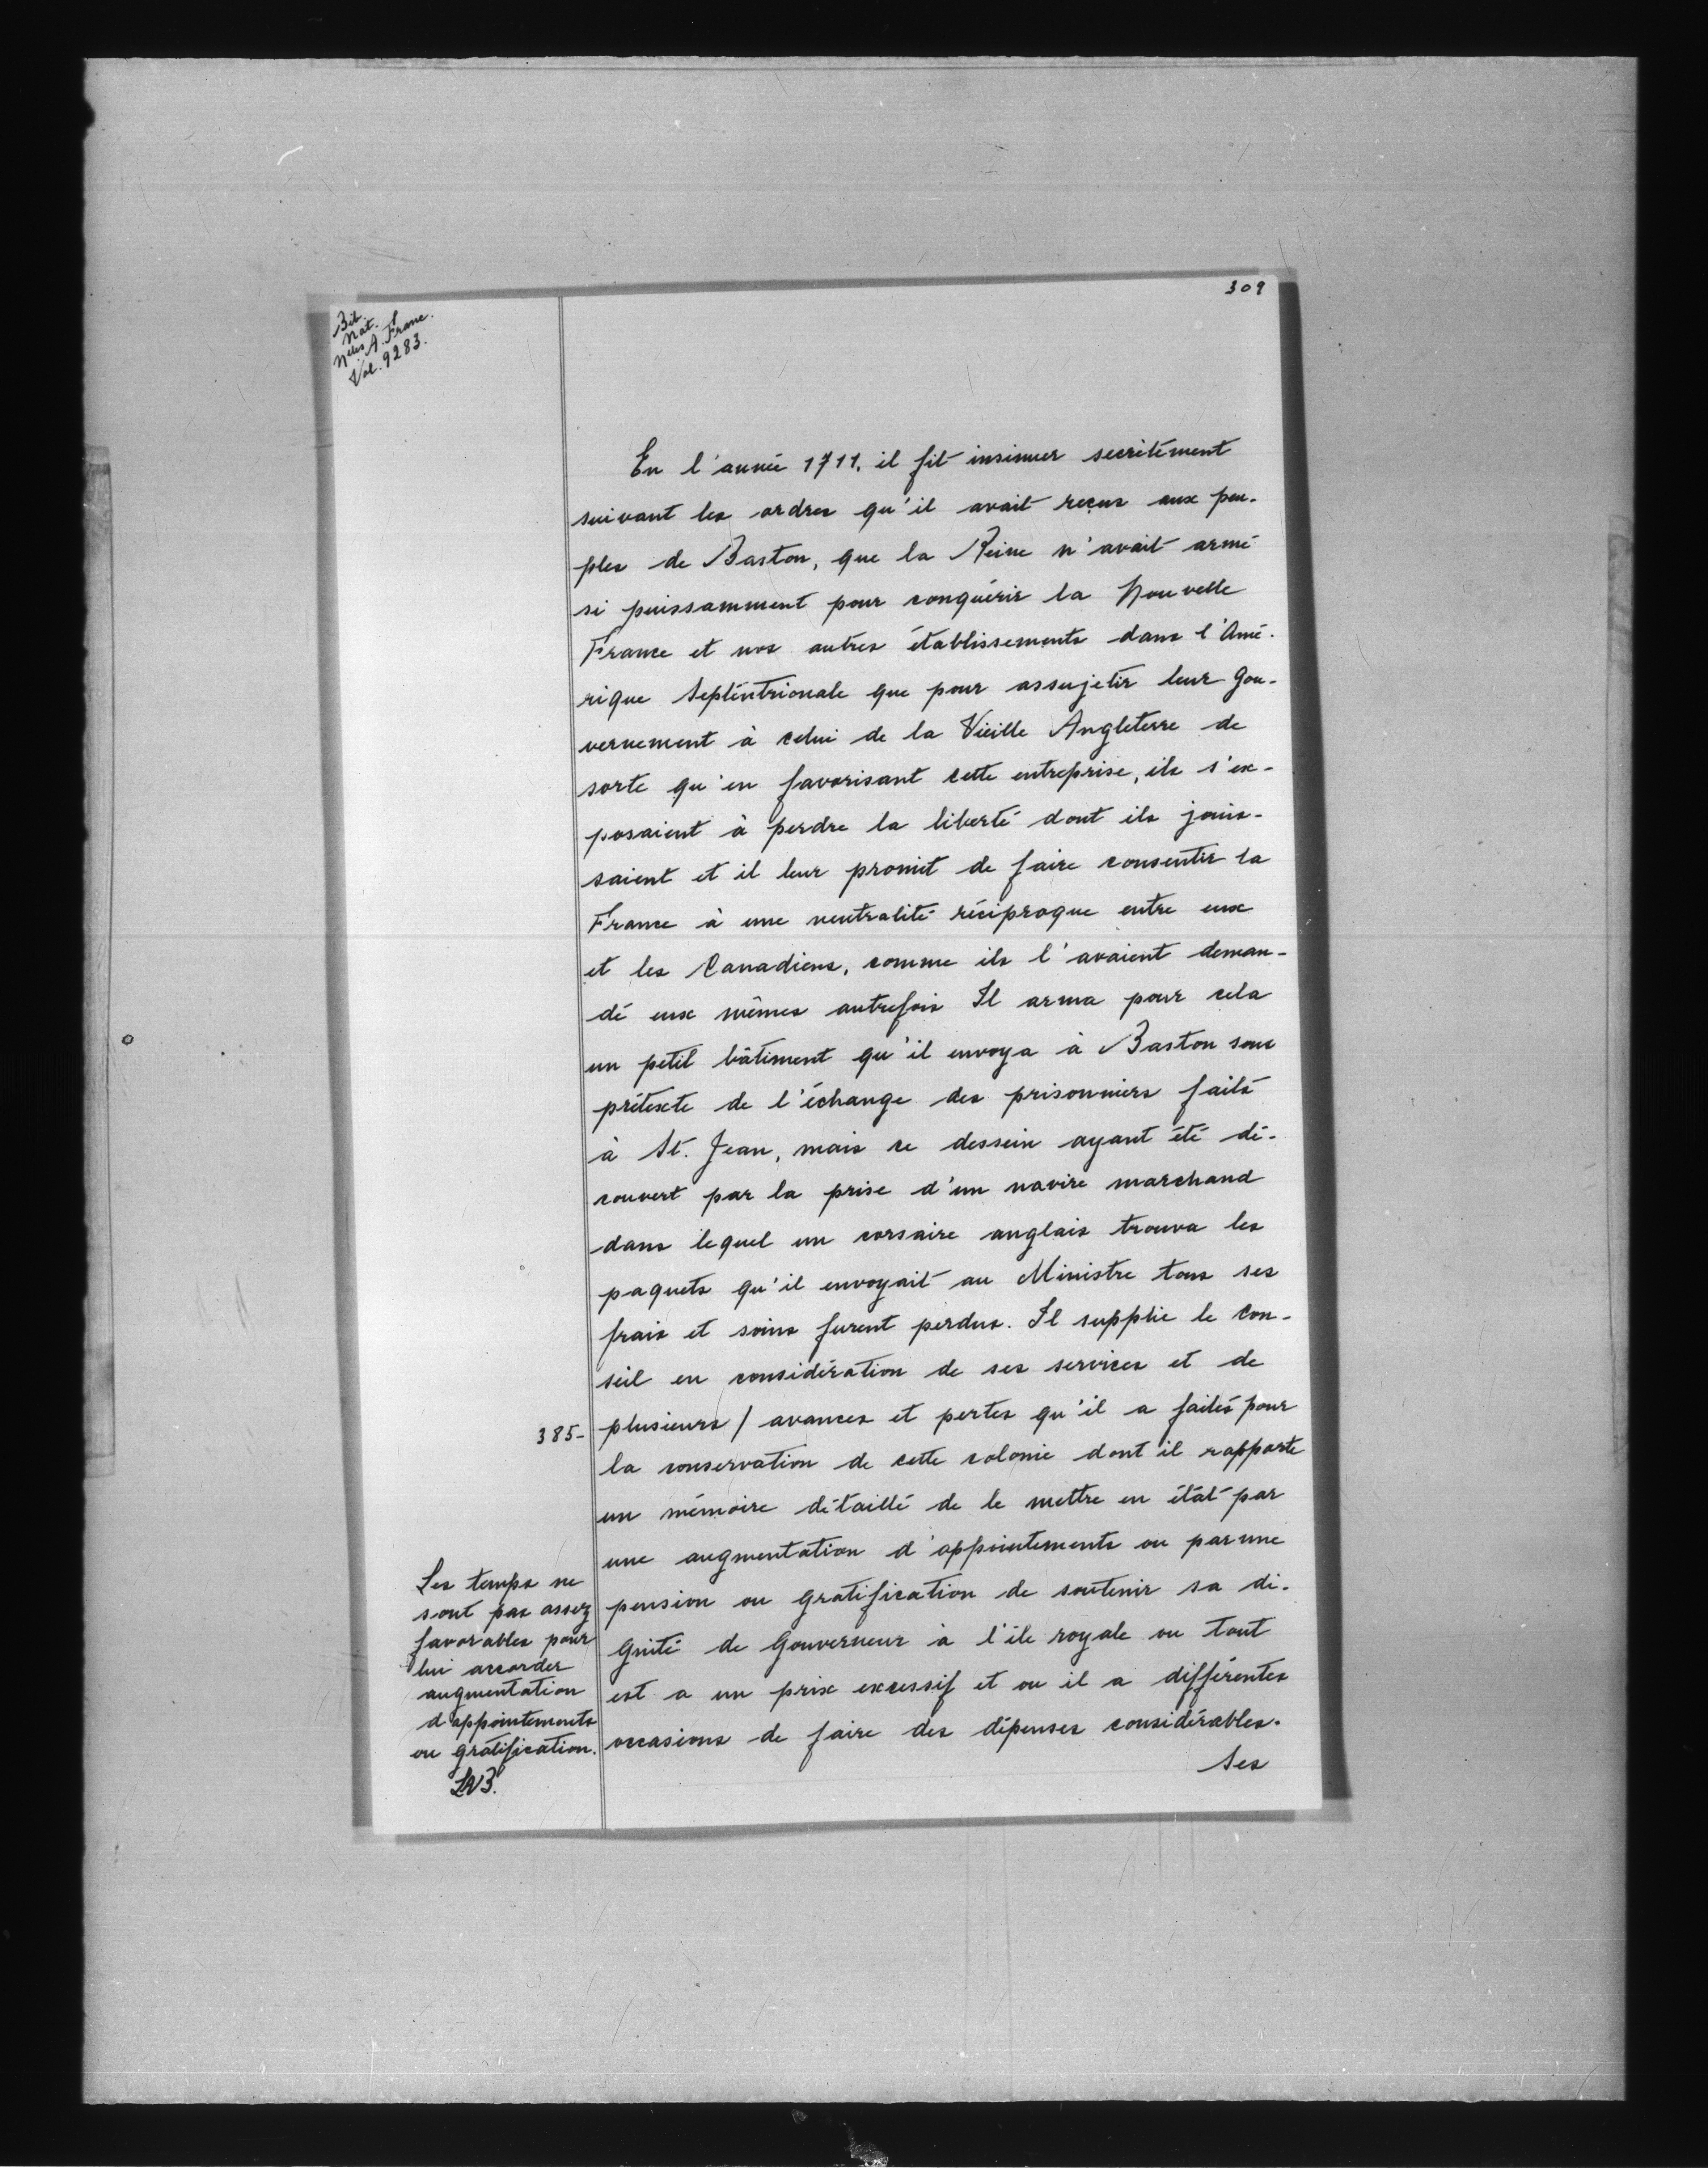 309
Bib.
Nat.
Nelles A. Franc.
Vol. 9283.
En l'année 1711, il fit insinuer secrètement
suivant les ordres qu'il avait reçus aux peu-
ples de Baston, que la Reine n'avait armé
si puissamment pour conquérir la Nouvelle
France et nos autres établissements dans l'Amé-
rique Septentrionale que pour assujetir leur gou-
vernement à celui de la Vieille Angleterre de
sorte qu'en favorisant cette entreprise, ils s'ex-
posaient à perdre la liberté dont ils jouis-
saient et il leur promit de faire consentir la
France à une neutralité réciproque entre eux
et les Canadiens, comme ils l'avaient deman-
dé eux mêmes autrefois Il arma pour cela
un petit bâtiment qu'il envoya à Baston sous
prétexte de l'échange des prisonniers faits
à St. Jean, mais ce dessein ayant été dé-
couvert par la prise d'un navire marchand
dans lequel un corsaire anglais trouva les
paquets qu'il envoyait au Ministre tous ses
frais et soins furent perdus. Il supplie le Con-
seil en considération de ses services et de
385- plusieurs / avances et pertes qu'il a faites pour
la conservation de cette colonie dont il rapporte
un mémoire détaillé de le mettre en état par
une augmentation d'appointements ou par une
pension ou gratification de soutenir sa di-
gnité de Gouverneur à l'île royale ou tout
est a un prix excessif et ou il a différentes
occasions de faire des dépenses considérables.
Ses
Les temps ne
sont pas assez
favorables pour
lui accorder
augmentation
d'appointements
ou gratification.
LAB.